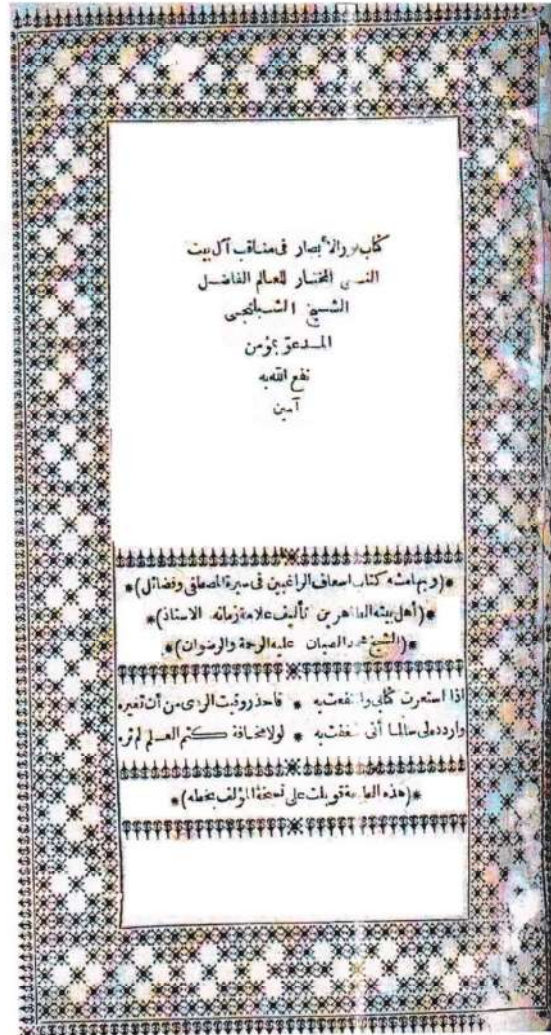 كتاب نور الأبصار فى مناقب آل بيت
النبى المختار للعالم الفاضل
الشيخ الشبلنجى
المدعو بمؤمن
نفع الله به
آمين
*(وبهامشه كتاب اسعاف الراغبين فى سيرة المصطفى وفضائل)*
*(أهل بيته الطاهرين تأليف علامة زمانه الاستاذ)*
*(الشيخ محمد الصبان عليه الرحمة والرضوان)*
اذا استعرت كتابى وانتفعت به * فاحذر وقيت الردى من أن تغيره
واردده لى سالما أنى شغفت به * لولا مخافة كتم العلم لم تره
*(هذه الطبعة قوبلت على نسخة المؤلف بخطه)*